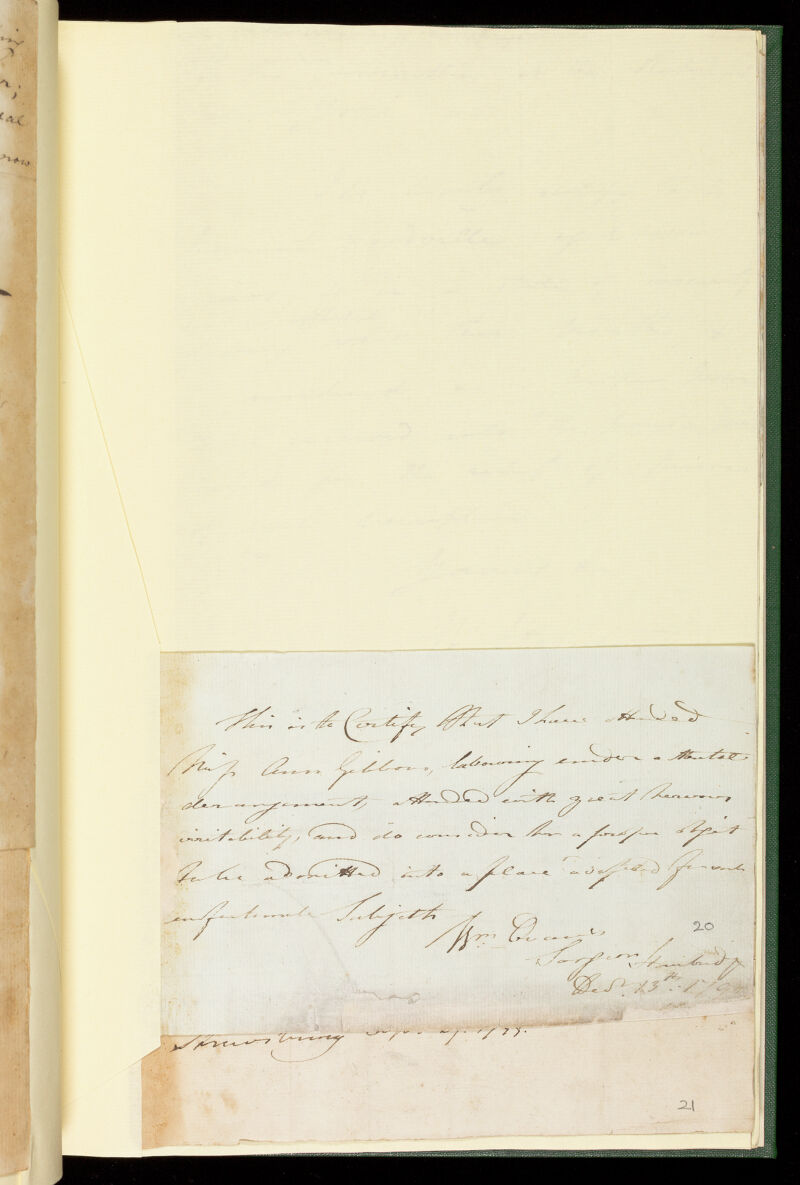 This is to Certify, that I have attended
Miss Ann Gibbons, labouring under a Mental
derangement, attended with great nervous
irritability, and do consider her a proper object
to be admitted into a place adapted for such
unfortunate Subjects
Wm. Evans
20
Surgeon,
Decr. 13th. 179
Shrewsbury
21